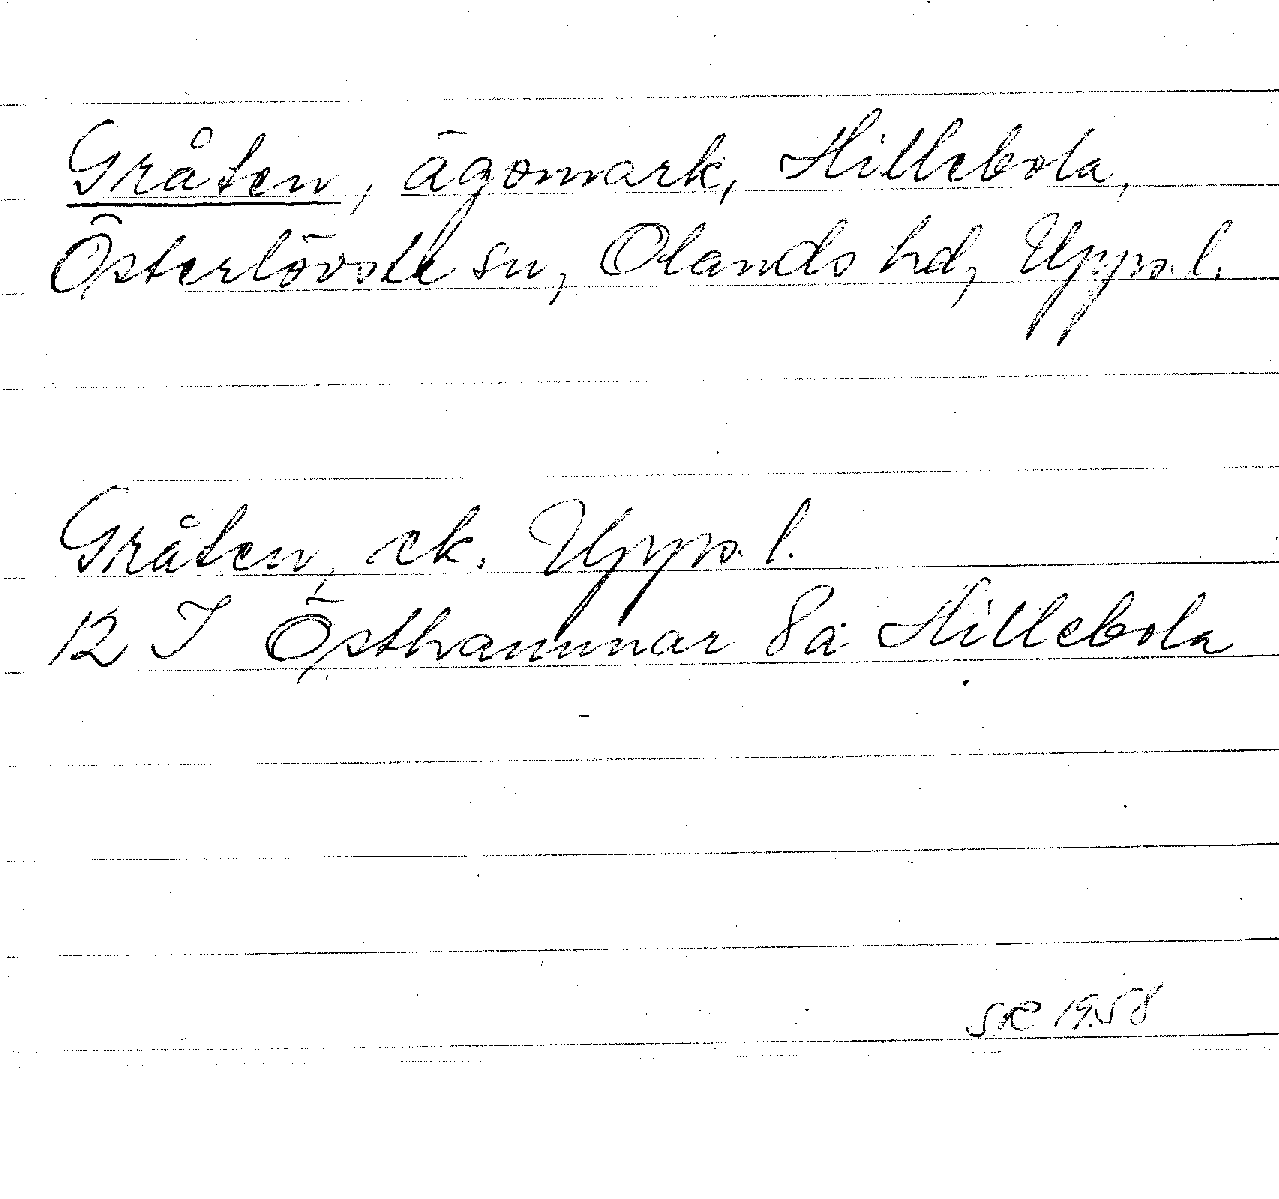 Gråten, ägomark, Hillebola,
Österlövsta sn, Olands hd, Upps. l.
Gråten, ek. Upps. l.
12 I Östhammar 8a Hillebola
1958